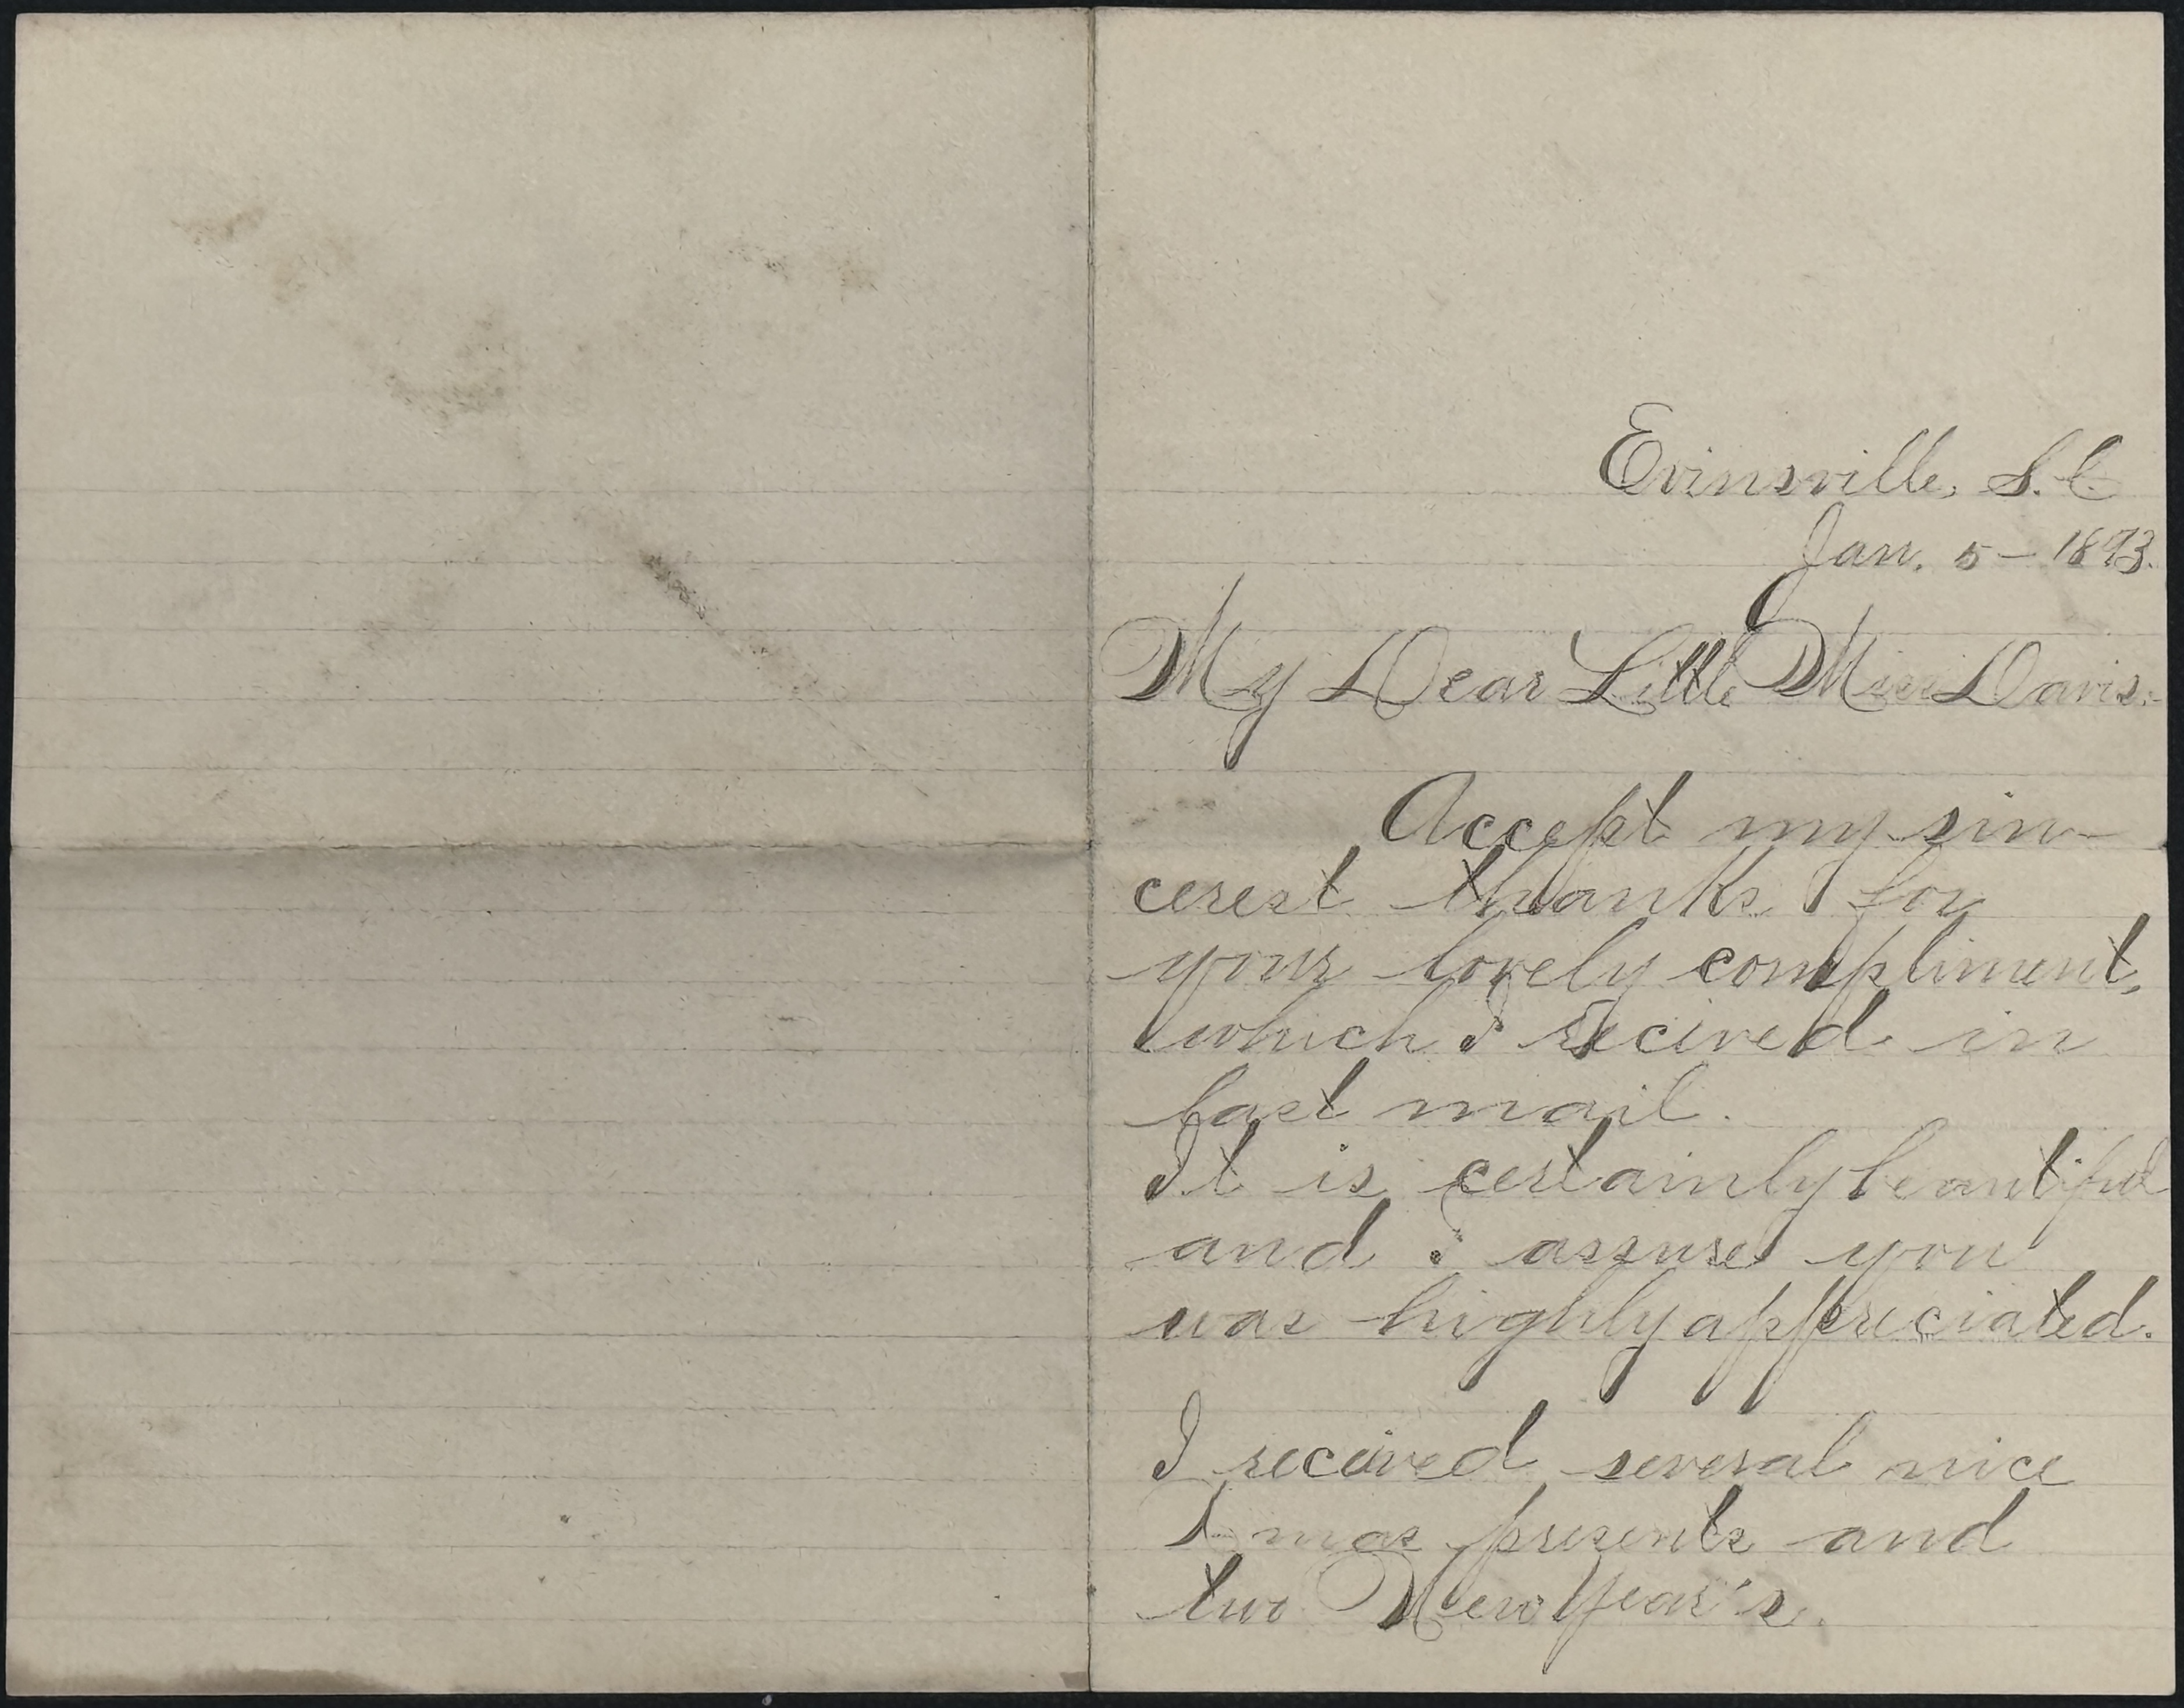 Evinsville, S.C
Jan. 5 – 1893.
My Dear Little Miss Davis:-
Accept my sin-
cerest thanks for
your lovely compliment,
which I recived in
last mail.
It is certainly beautiful
and I assure you
was highly appreciated.
I received several nice
Xmas presents and
two New Year's.